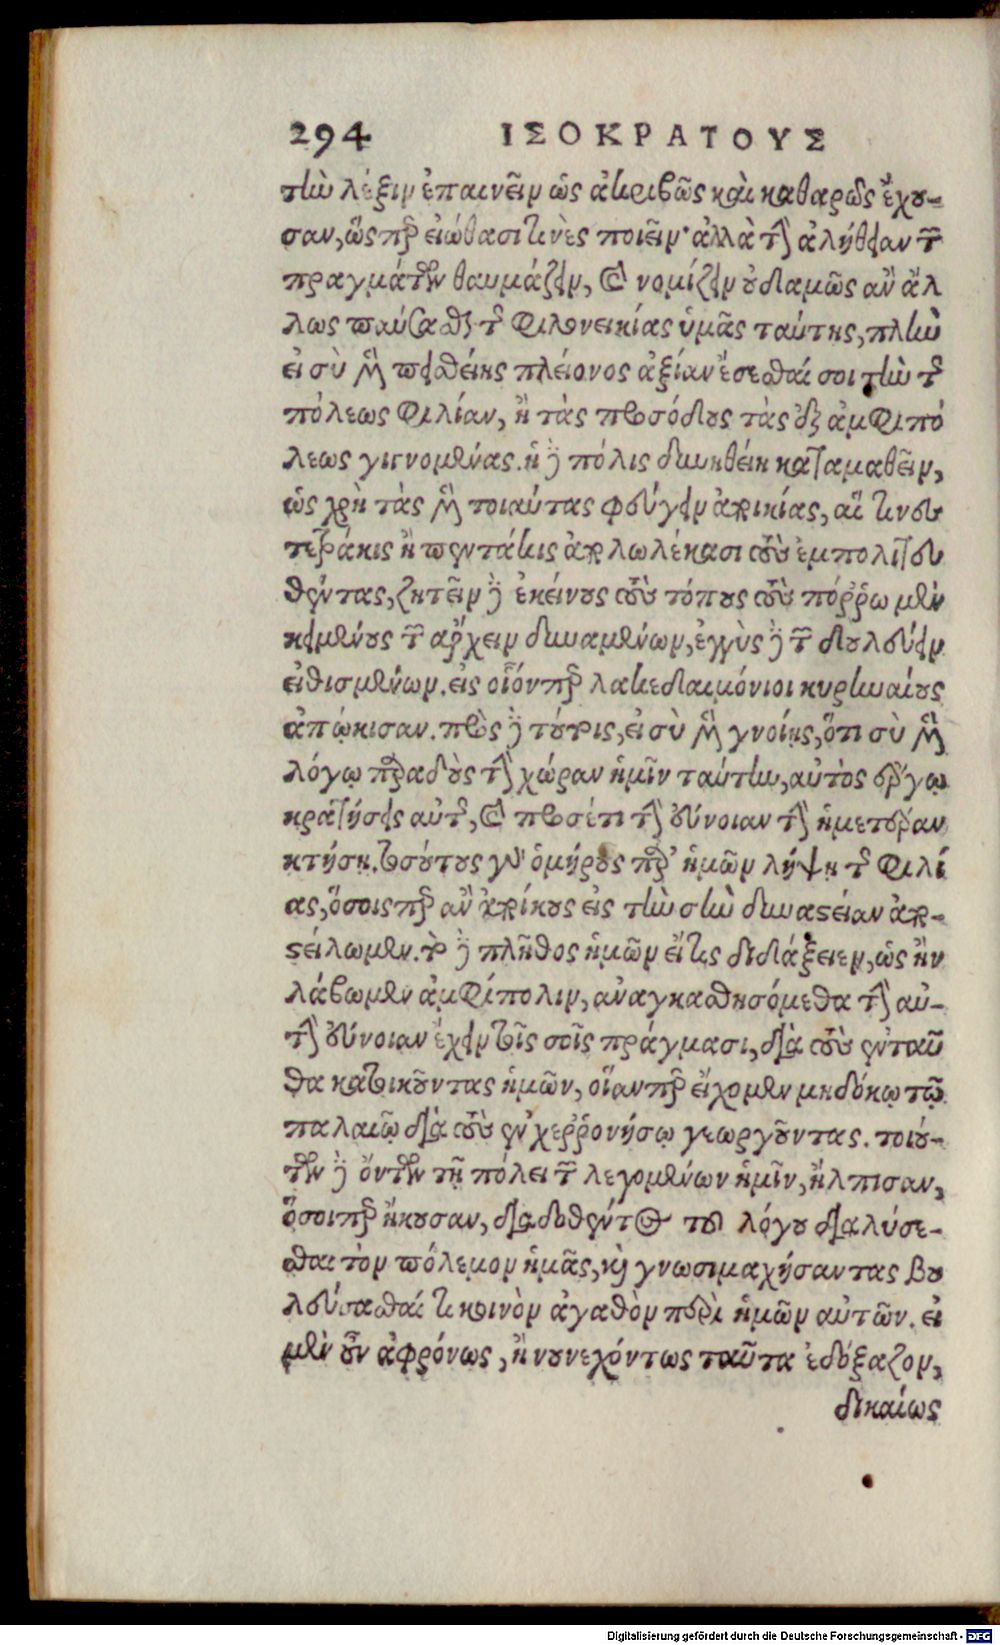 294 ΙΣΟΚΡΑΤΟΥΣ
τὴν λέξιν ἐπαινεῖν ὡς ἀκριβῶς καὶ καθαρῶς ἔχου-
σαν, ὥσπερ εἰώθασι τινὲς ποιεῖν· ἀλλὰ τὴν ἀλήθειαν τῶν
πραγμάτων θαυμάζειν, καὶ νομίζειν οὐδαμῶς ἂν ἄλ
λως παύσασθαι τῆς φιλονεικίας ὑμᾶς ταύτης, πλὴν
εἰ σὺ μὲν πεισθείης πλείονος ἀξίαν ἔσεσθαί σοι τὴν τῆς
πόλεως φιλίαν, ἢ τὰς προσόδους τὰς ἐξ ἀμφιπό
λεως γιγνομένας. ἡ δὲ πόλις δυνηθείη καταμαθεῖν,
ὡς χρὴ τὰς μὲν τοιαύτας φεύγειν ἀποικίας, αἵ τινες
τετράκις ἢ πεντάκις ἀπολωλέκασι τοὺς ἐμπολιτευ
θέντας, ζητεῖν δὲ ἐκείνους τοὺς τόπους τοὺς πόῤῥω μὲν
κειμένους τῶν ἄρχειν δυναμένων, ἐγγὺς δὲ τῶν δουλεύειν
εἰθισμένων. εἰς οἷόνπερ λακεδαιμόνιοι κυρηναίους
ἀπώκισαν. πρὸς δὲ τούτοις, εἰ σὺ μὲν γνοίης, ὅτι σὺ μὲν
λόγῳ παραδοὺς τὴν χώραν ἡμῖν ταύτην, αὐτὸς ἔργῳ
κρατήσεις αὐτῆς, καὶ προσέτι τὴν εὔνοιαν τὴν ἡμετέραν
κτήσῃ. τοσούτους γὰρ ὁμήρους παρ' ἡμῶν λήψῃ τῆς φιλί
ας, ὅσοισπερ ἂν ἀποίκους εἰς τὴν σὴν δυναστείαν ἀπο-
στείλωμεν. τὸ δὲ πλῆθος ἡμῶν εἴ τις διδάξειεν, ὡς ἢν
λάβωμεν ἀμφίπολιν, ἀναγκασθησόμεθα τὴν αὐ-
τὴν εὔνοιαν ἔχειν τοῖς σοῖς πράγμασι, διὰ τοὺς ἐνταῦ
θα κατοικοῦντας ἡμῶν, οἵανπερ εἴχομεν μηδόκῳ τῷ
παλαιῷ διὰ τοὺς ἐν χεῤῥονήσῳ γεωργοῦντας. τοιού-
των δὲ ὄντων τῇ πόλει τῶν λεγομένων ἡμῖν, ἤλπισαν,
ὅσοιπερ ἤκουσαν, διαδοθέντος τοῦ λόγου διαλύσε-
σθαι τὸν πόλεμον ἡμᾶς, καὶ γνωσιμαχήσαντας βου
λεύσασθαί τι κοινὸν ἀγαθὸν περὶ ἡμῶν αὐτῶν. εἰ
μὲν οὖν ἀφρόνως, ἢ νουνεχόντως ταῦτα ἐδόξαζον,
δικαίως
Digitalisierung gefördert durch die Deutsche Forschungsgemeinschaft - DFG